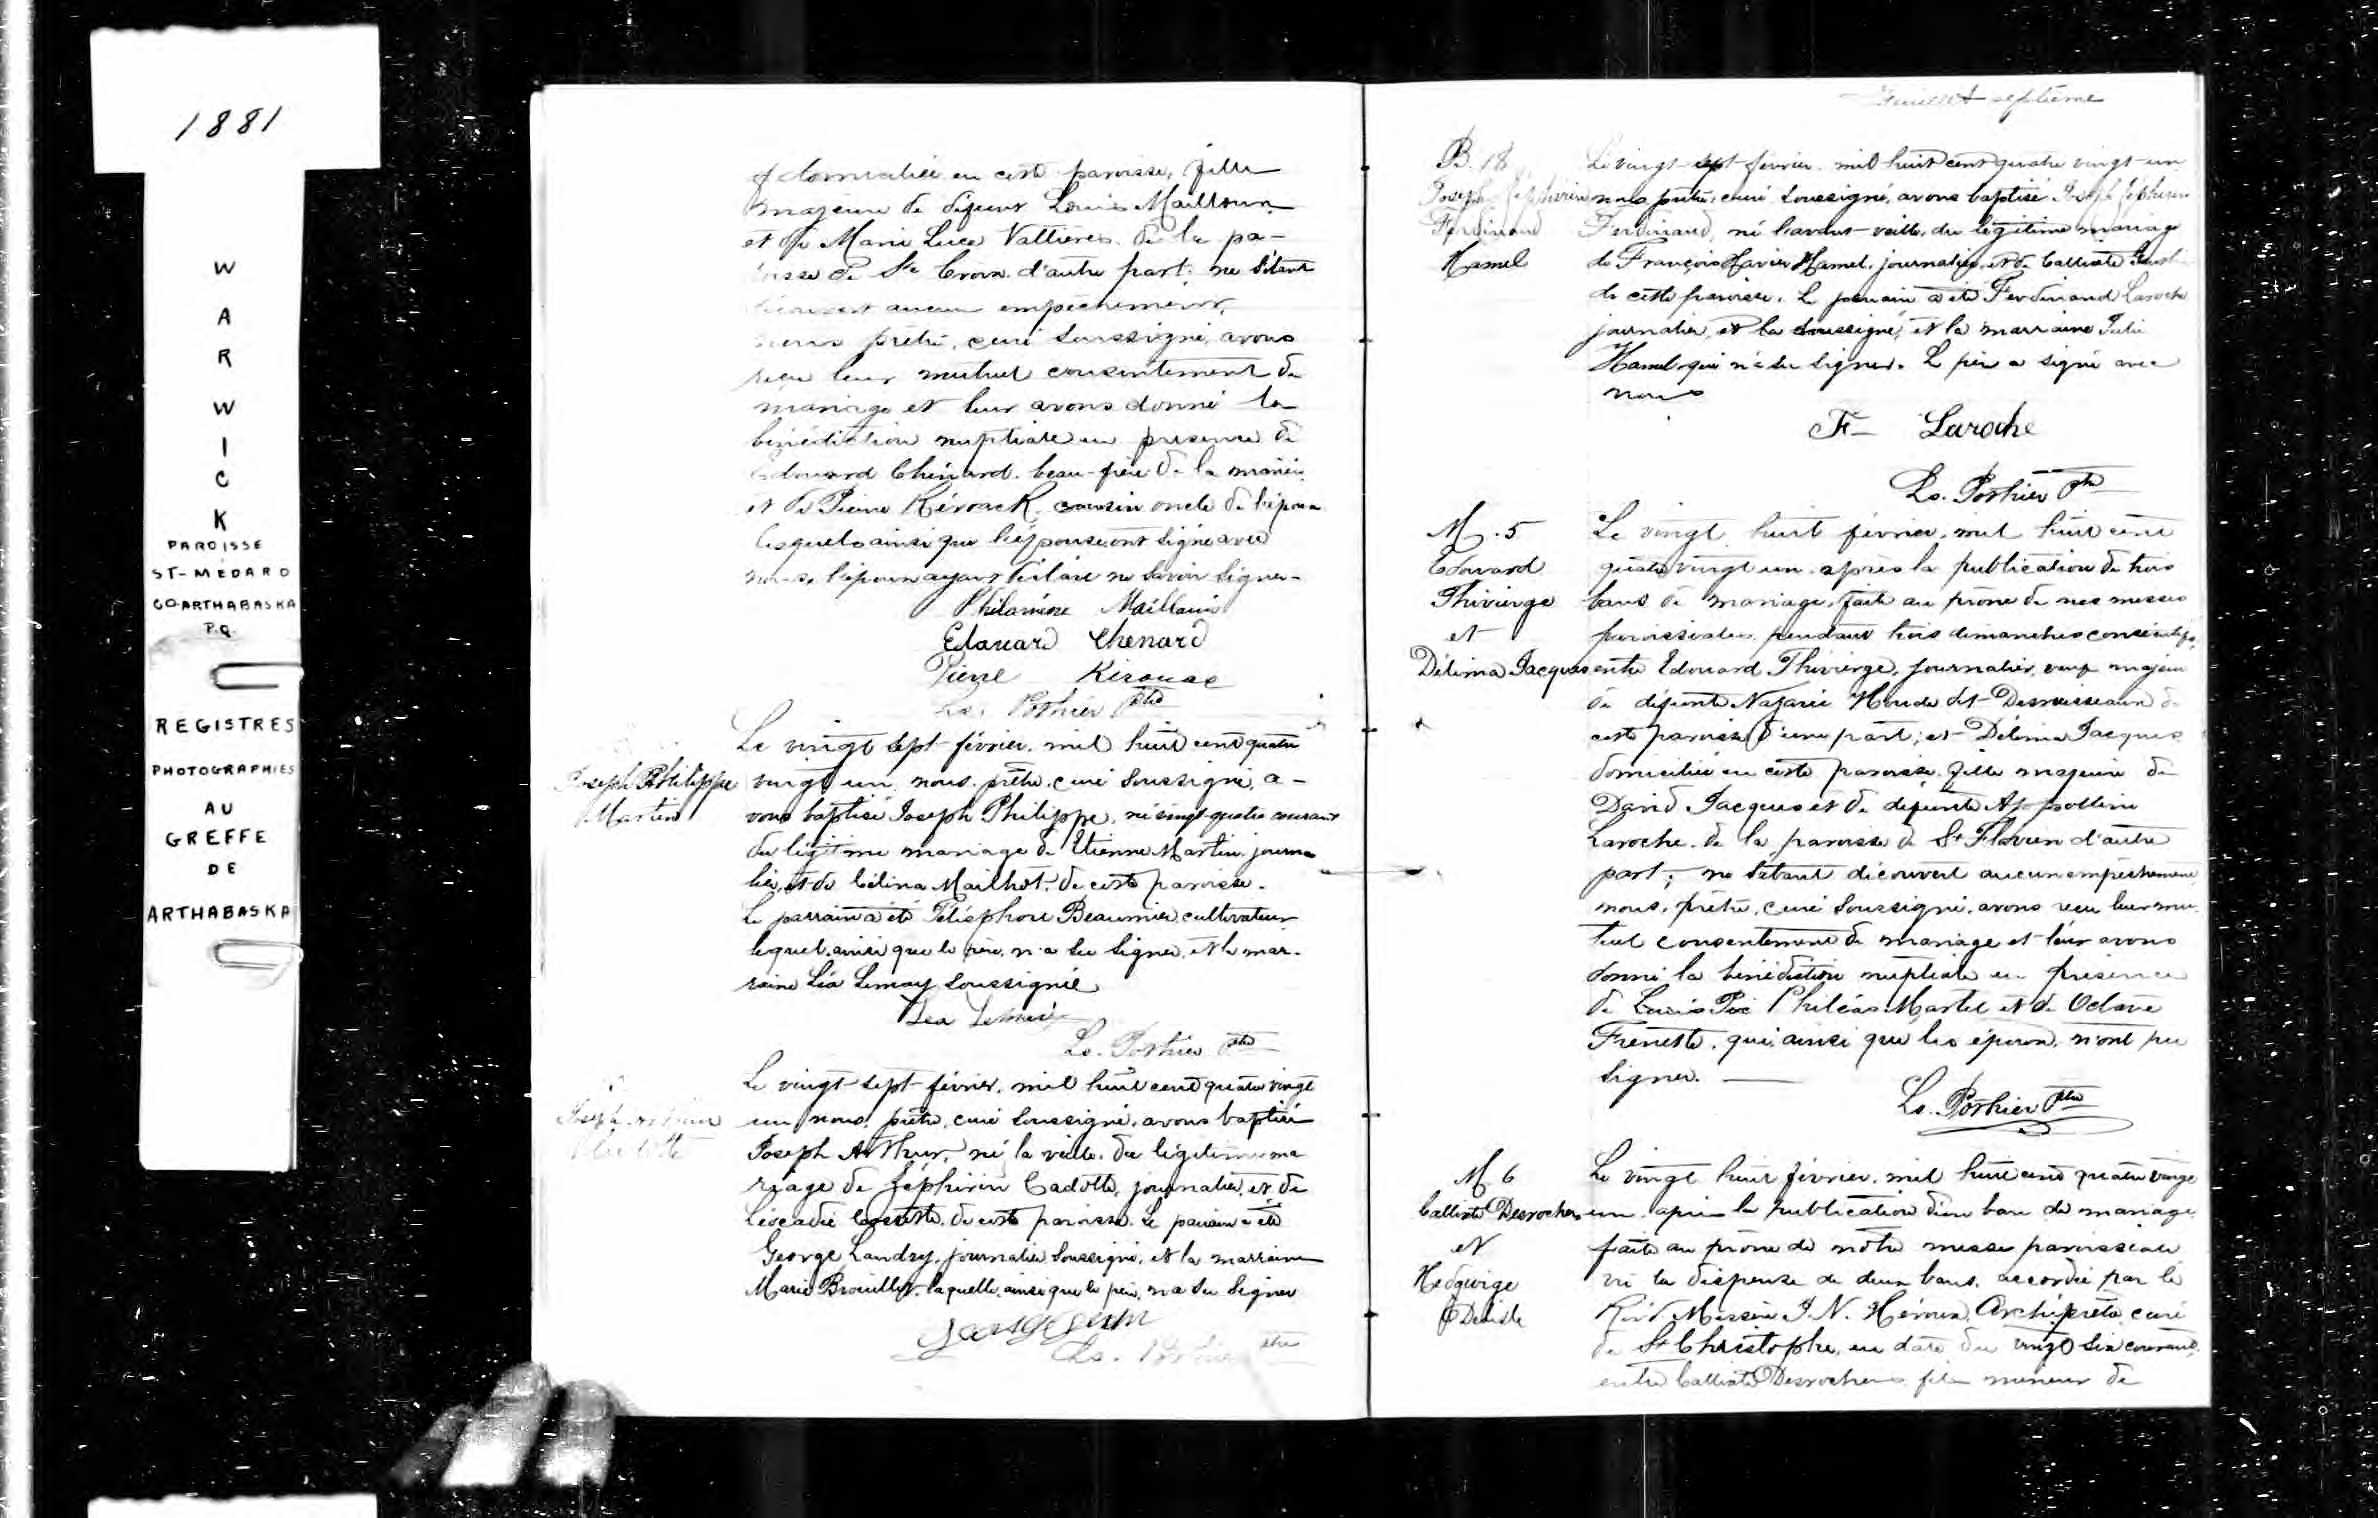 1881
WARWICK
PAROISSE
ST-MÉDARD
CO-ARTHABASKA
P.Q.
REGISTRES
PHOTOGRAPHIES
AU
GREFFE
DE
ARTHABASKA
domiciliée en cette paroisse, fille
majeure de défunt Louis Mailloux
et de Marie Luce Vallières de la pa-
roisse de Ste Croix d'autre part; ne s'étant
découvert aucun empêchement,
nous prêtre, curé soussigné, avons
reçu leur mutuel consentement de
mariage et leur avons donné la
bénédiction nuptiale en présence de
Edouard Chénard, beau-frère de la mariée
et de Pierre Kéroack, cousin oncle de l'époux
lesquels ainsi que l'épouse ont signé avec
nous, l'époux ayant déclaré ne savoir signer-
Philomène Mailloux
Edouard Chenard
Pierre Kirouac
Ls. Pothier Ptre
Joseph Philippe
Martin
Le vingt sept février, mil huit cent quatre
vingt un, nous, prêtre, curé soussigné, a-
vons baptisé Joseph Philippe, né vingt-quatre courant
du légitime mariage de Etienne Martin, journa
lier, et de Célina Mailhot, de cette paroisse.
Le parrain a été Télesphore Beaumier, cultivateur
lequel, ainsi que le père, n'a su signer, et la mar-
raine Léa Lemay soussignée
Léa Lemay
Ls. Pothier Ptre
Joseph Arthur
Cadotte
Le vingt-sept février, mil huit cent quatre vingt
un, nous, prêtre, curé soussigné, avons baptisé
Joseph Arthur, né la veille, du légitime ma
riage de Zéphirin Cadotte, journalier, et de
Léocadie de cette paroisse. Le parrain a été
George Landry, journalier soussigné, et la marraine
Marie Brouillet, laquelle, ainsi que le père, n'a su signer
Ls. Pothier Ptre
Feuillet septième
B. 18
Joseph Zéphirin
Ferdinand
Hamel
Le vingt-sept février, mil huit cent quatre vingt-un
nous prêtre, curé soussigné, avons baptisé Joseph Zéphirin
Ferdinand, né l'avant-veille, du légitime mariage
de François Xavier Hamel, journalier, et de Calliste
de cette paroisse. Le parrain a été Ferdinand Laroche
journalier, et la soussigné, et la marraine Julie
Hamel qui n'a su signer. Le père a signé avec
nous
F- Laroche
Ls. Pothier Ptre
M. 5
Edouard
Thivierge
et
Délima Jacques
Le vingt huit février, mil huit cent
quatre vingt un, après la publication de trois
bans de mariage, faite au prône de nos messes
paroissiales, pendant trois dimanches consécutifs,
entre Edouard Thivierge, journalier, veuf majeur
de défunte Nazarie Houde dit Desruisseaux de
cette paroisse d'une part; et Délima Jacques
domiciliée en cette paroisse, fille majeure de
David Jacques et de défunte Appolline
Laroche, de la paroisse de St Flavien d'autre
part; ne s'étant découvert aucun empêchement
nous, prêtre, curé soussigné, avons reçu leur mu-
tuel consentement de mariage et leur avons
donné la bénédiction nuptiale en présence
de Louis Philéas Martel et de Octave
Frenette, qui, ainsi que les époux, n'ont pu
signer.
Ls. Pothier Ptre
M 6
Calliste Desrochers
et
Hedwige
Delisle
Le vingt huit février, mil huit cent quatre vingt
un, après la publication d'un ban de mariage
faite au prône de notre messe paroissiale
vu la dispense de deux bans, accordée par le
Révd Messire J. N. Héroux, Archiprêtre, curé
de St Christophe, en date du vingt six courant,
entre Calliste Desrochers, fils mineur de